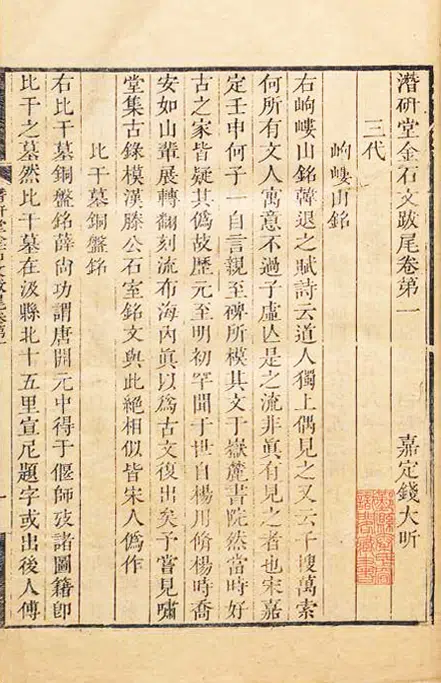 潛研堂金石文跋尾卷第一
嘉定錢大昕
三代
岣嶁山銘
右岣嶁山銘韓退之賦詩云道人獨上偶見之又云千搜萬索
何所有文人寓意不過子虛亾是之流非眞有見之者也宋嘉
定壬申何子一自言親至碑所模其文于嶽麓書院然當時好
古之家皆疑其僞故歷元至明初罕聞于世自楊用脩楊時喬
安如山輩展轉翻刻流布海內眞以爲古文復出矣予嘗見嘯
堂集古錄模漢滕公石室銘文與此絕相似皆宋人僞作
比干墓銅盤銘
右比干墓銅盤銘薛尙功謂唐開元中得于偃師攷諸圖籍卽
比干之墓然比干墓在汲縣北十五里宣尼題字或出後人傅